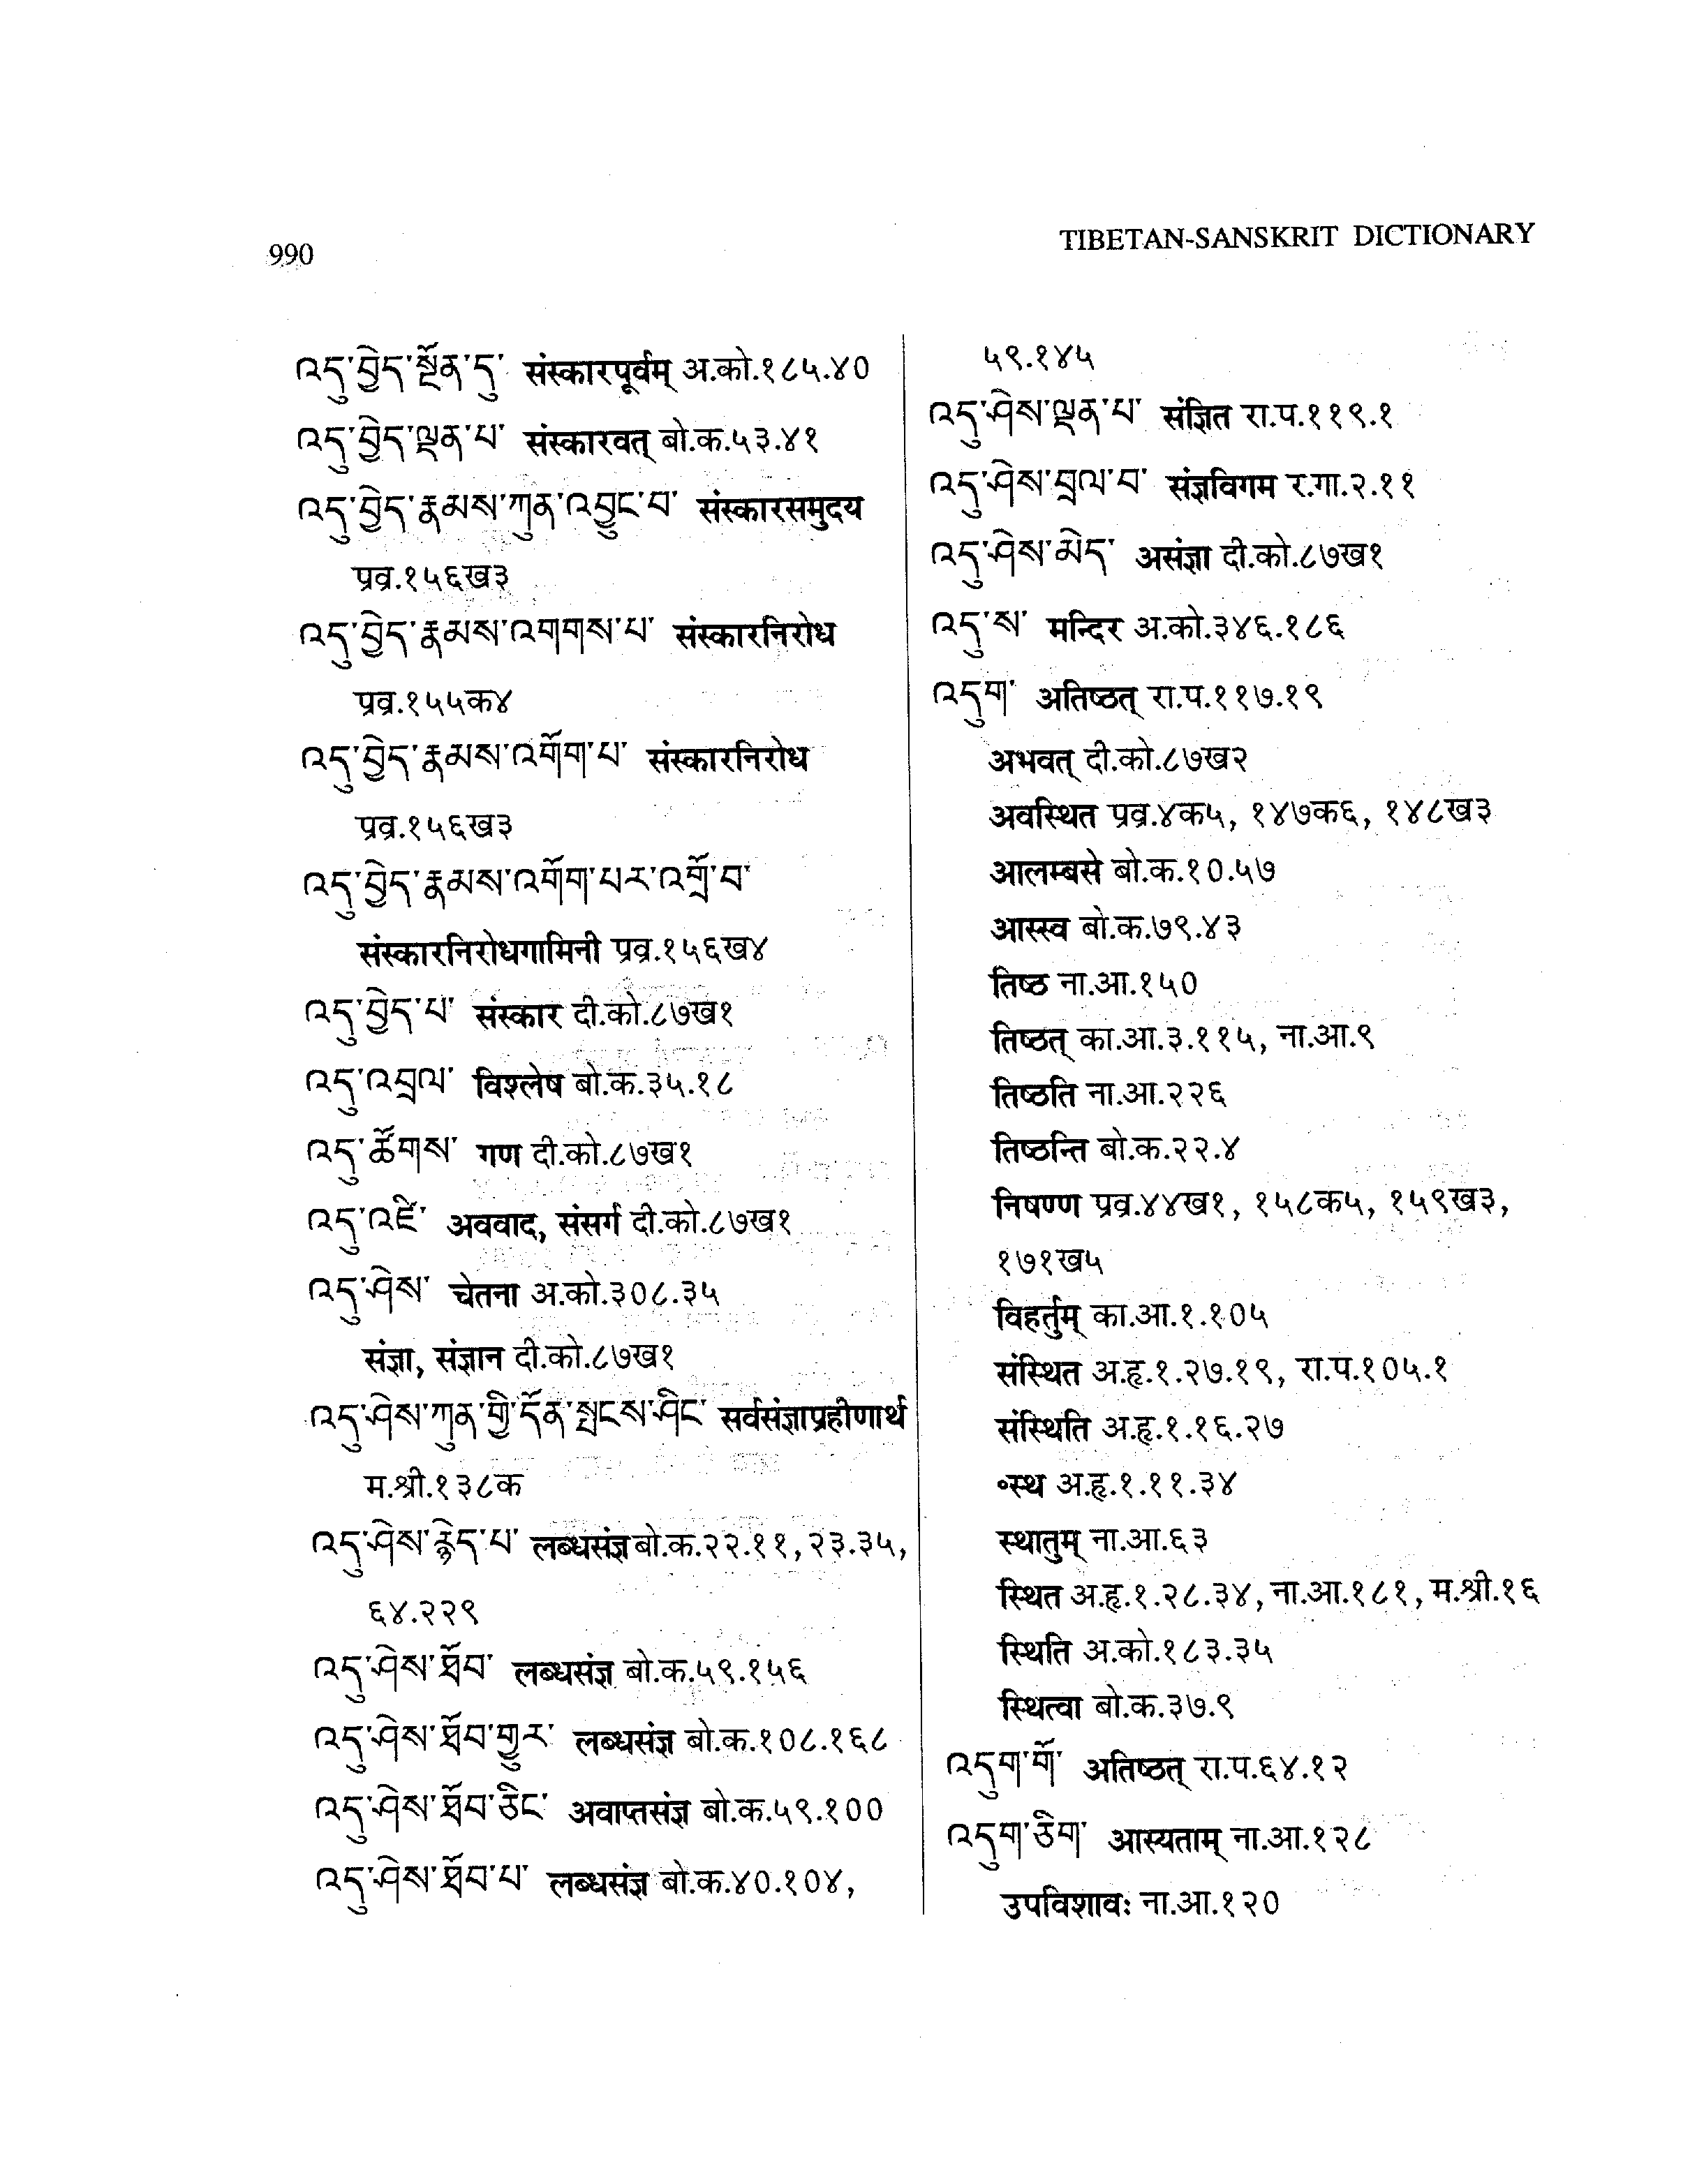 990
TIBETAN-SANSKRIT DICTIONARY
འདུ་བྱེད་སྔོན་དུ་ संस्कारपूर्वम् अ.को.१८५.४०
འདུ་བྱེད་ལྡན་པ་ संस्कारवत् बो.क.५३.४१
འདུ་བྱེད་རྣམས་ཀུན་འབྱུང་བ་ संस्कारसमुदय
प्रव्र.१५६ख३
འདུ་བྱེད་རྣམས་འགགས་པ་ संस्कारनिरोध
प्रव्र.१५५क४
འདུ་བྱེད་རྣམས་འགོག་པ་ संस्कारनिरोध
प्रव्र.१५६ख३
འདུ་བྱེད་རྣམས་འགོག་པར་འགྲོ་བ་
संस्कारनिरोधगामिनी प्रव्र.१५६ख४
འདུ་བྱེད་པ་ संस्कार दी.को.८७ख१
འདུ་འབྲལ་ विश्लेष बो.क.३५.१८
འདུ་ཚོགས་ गण दी.को.८७ख१
འདུ་འཛི་ अववाद, संसर्ग दी.को.८७ख१
འདུ་ཤེས་ चेतना अ.को.३०८.३५
संज्ञा, संज्ञान दी.को.८७ख१
འདུ་ཤེས་ཀུན་གྱི་དོན་སྤངས་ཤིང་ सर्वसंज्ञाप्रहीणार्थ
म.श्री.१३८क
འདུ་ཤེས་རྙེད་པ་ लब्धसंज्ञ बो.क.२२.११, २३.३५,
६४.२२९
འདུ་ཤེས་ཐོབ་ लब्धसंज्ञ बो.क.५९.१५६
འདུ་ཤེས་ཐོབ་གྱུར་ लब्धसंज्ञ बो.क.१०८.१६८
འདུ་ཤེས་ཐོབ་ཅིང་ अवाप्तसंज्ञ बो.क.५९.१००
འདུ་ཤེས་ཐོབ་པ་ लब्धसंज्ञ बो.क.४०.१०४,
५९.१४५
འདུ་ཤེས་ལྡན་པ་ संज्ञित रा.प.११९.१
འདུ་ཤེས་བྲལ་བ་ संज्ञविगम र.गा.२.११
འདུ་ཤེས་མེད་ असंज्ञा दी.को.८७ख१
འདུ་ས་ मन्दिर अ.को.३४६.१८६
འདུག་ अतिष्ठत् रा.प.११७.१९
अभवत् दी.को.८७ख२
अवस्थित प्रव्र.४क५, १४७क६, १४८ख३
आलम्बसे बो.क.१०.५७
आस्स्व बो.क.७९.४३
तिष्ठ ना.आ.१५०
तिष्ठत् का.आ.३.११५, ना.आ.९
तिष्ठति ना.आ.२२६
तिष्ठन्ति बो.क.२२.४
निषण्ण प्रव्र.४४ख१, १५८क५, १५९ख३,
१७१ख५
विहर्तुम् का.आ.१.१०५
संस्थित अ.हृ.१.२७.१९, रा.प.१०५.१
संस्थिति अ.हृ.१.१६.२७
॰स्थ अ.हृ.१.११.३४
स्थातुम् ना.आ.६३
स्थित अ.हृ.१.२८.३४, ना.आ.१८१, म.श्री.१६
स्थिति अ.को.१८३.३५
स्थित्वा बो.क.३७.९
འདུག་གོ་ अतिष्ठत् रा.प.६४.१२
འདུག་ཅིག་ आस्यताम् ना.आ.१२८
उपविशावः ना.आ.१२०